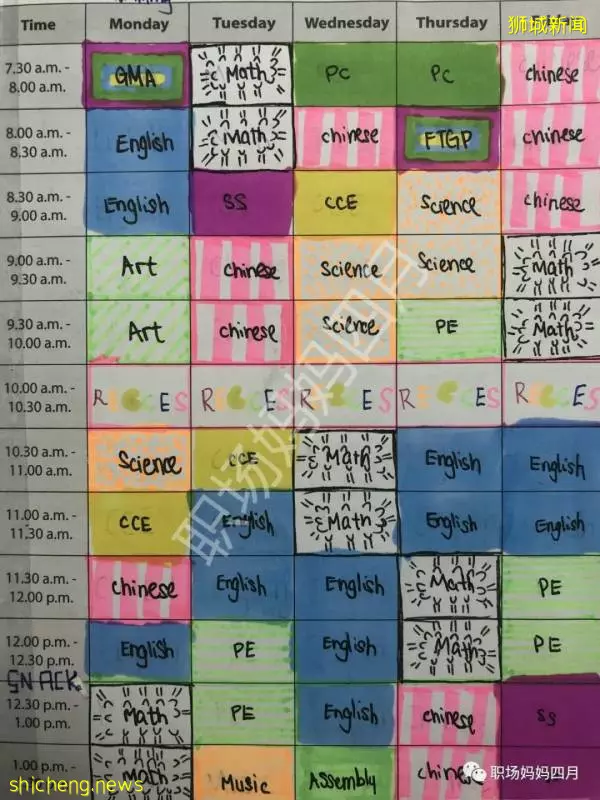 狮城新闻
Time Monday Tuesday Wednesday Thursday
7.30 a.m. - 8.00 a.m. GMA Math PC PC chinese
8.00 a.m. - 8.30 a.m. English Math chinese FTGP chinese
8.30 a.m. - 9.00 a.m. English SS CCE Science chinese
9.00 a.m. - 9.30 a.m. Art chinese Science Science Math
9.30 a.m. - 10.00 a.m. Art chinese Science PE Math
10.00 a.m. - 10.30 a.m. RECCES RECCES RECCES RECCES RECCES
10.30 a.m. - 11.00 a.m. Science CCE Math English English
11.00 a.m. - 11.30 a.m. CCE English Math English English
11.30 a.m. - 12.00 p.m. chinese English English Math PE
12.00 p.m. - 12.30 p.m. English PE English Math PE
SNACK
12.30 p.m. - 1.00 p.m. Math PE English chinese SS
1.00 p.m. - Math Music Assembly chinese
职场妈妈四月
职场妈妈四月
shicheng.news